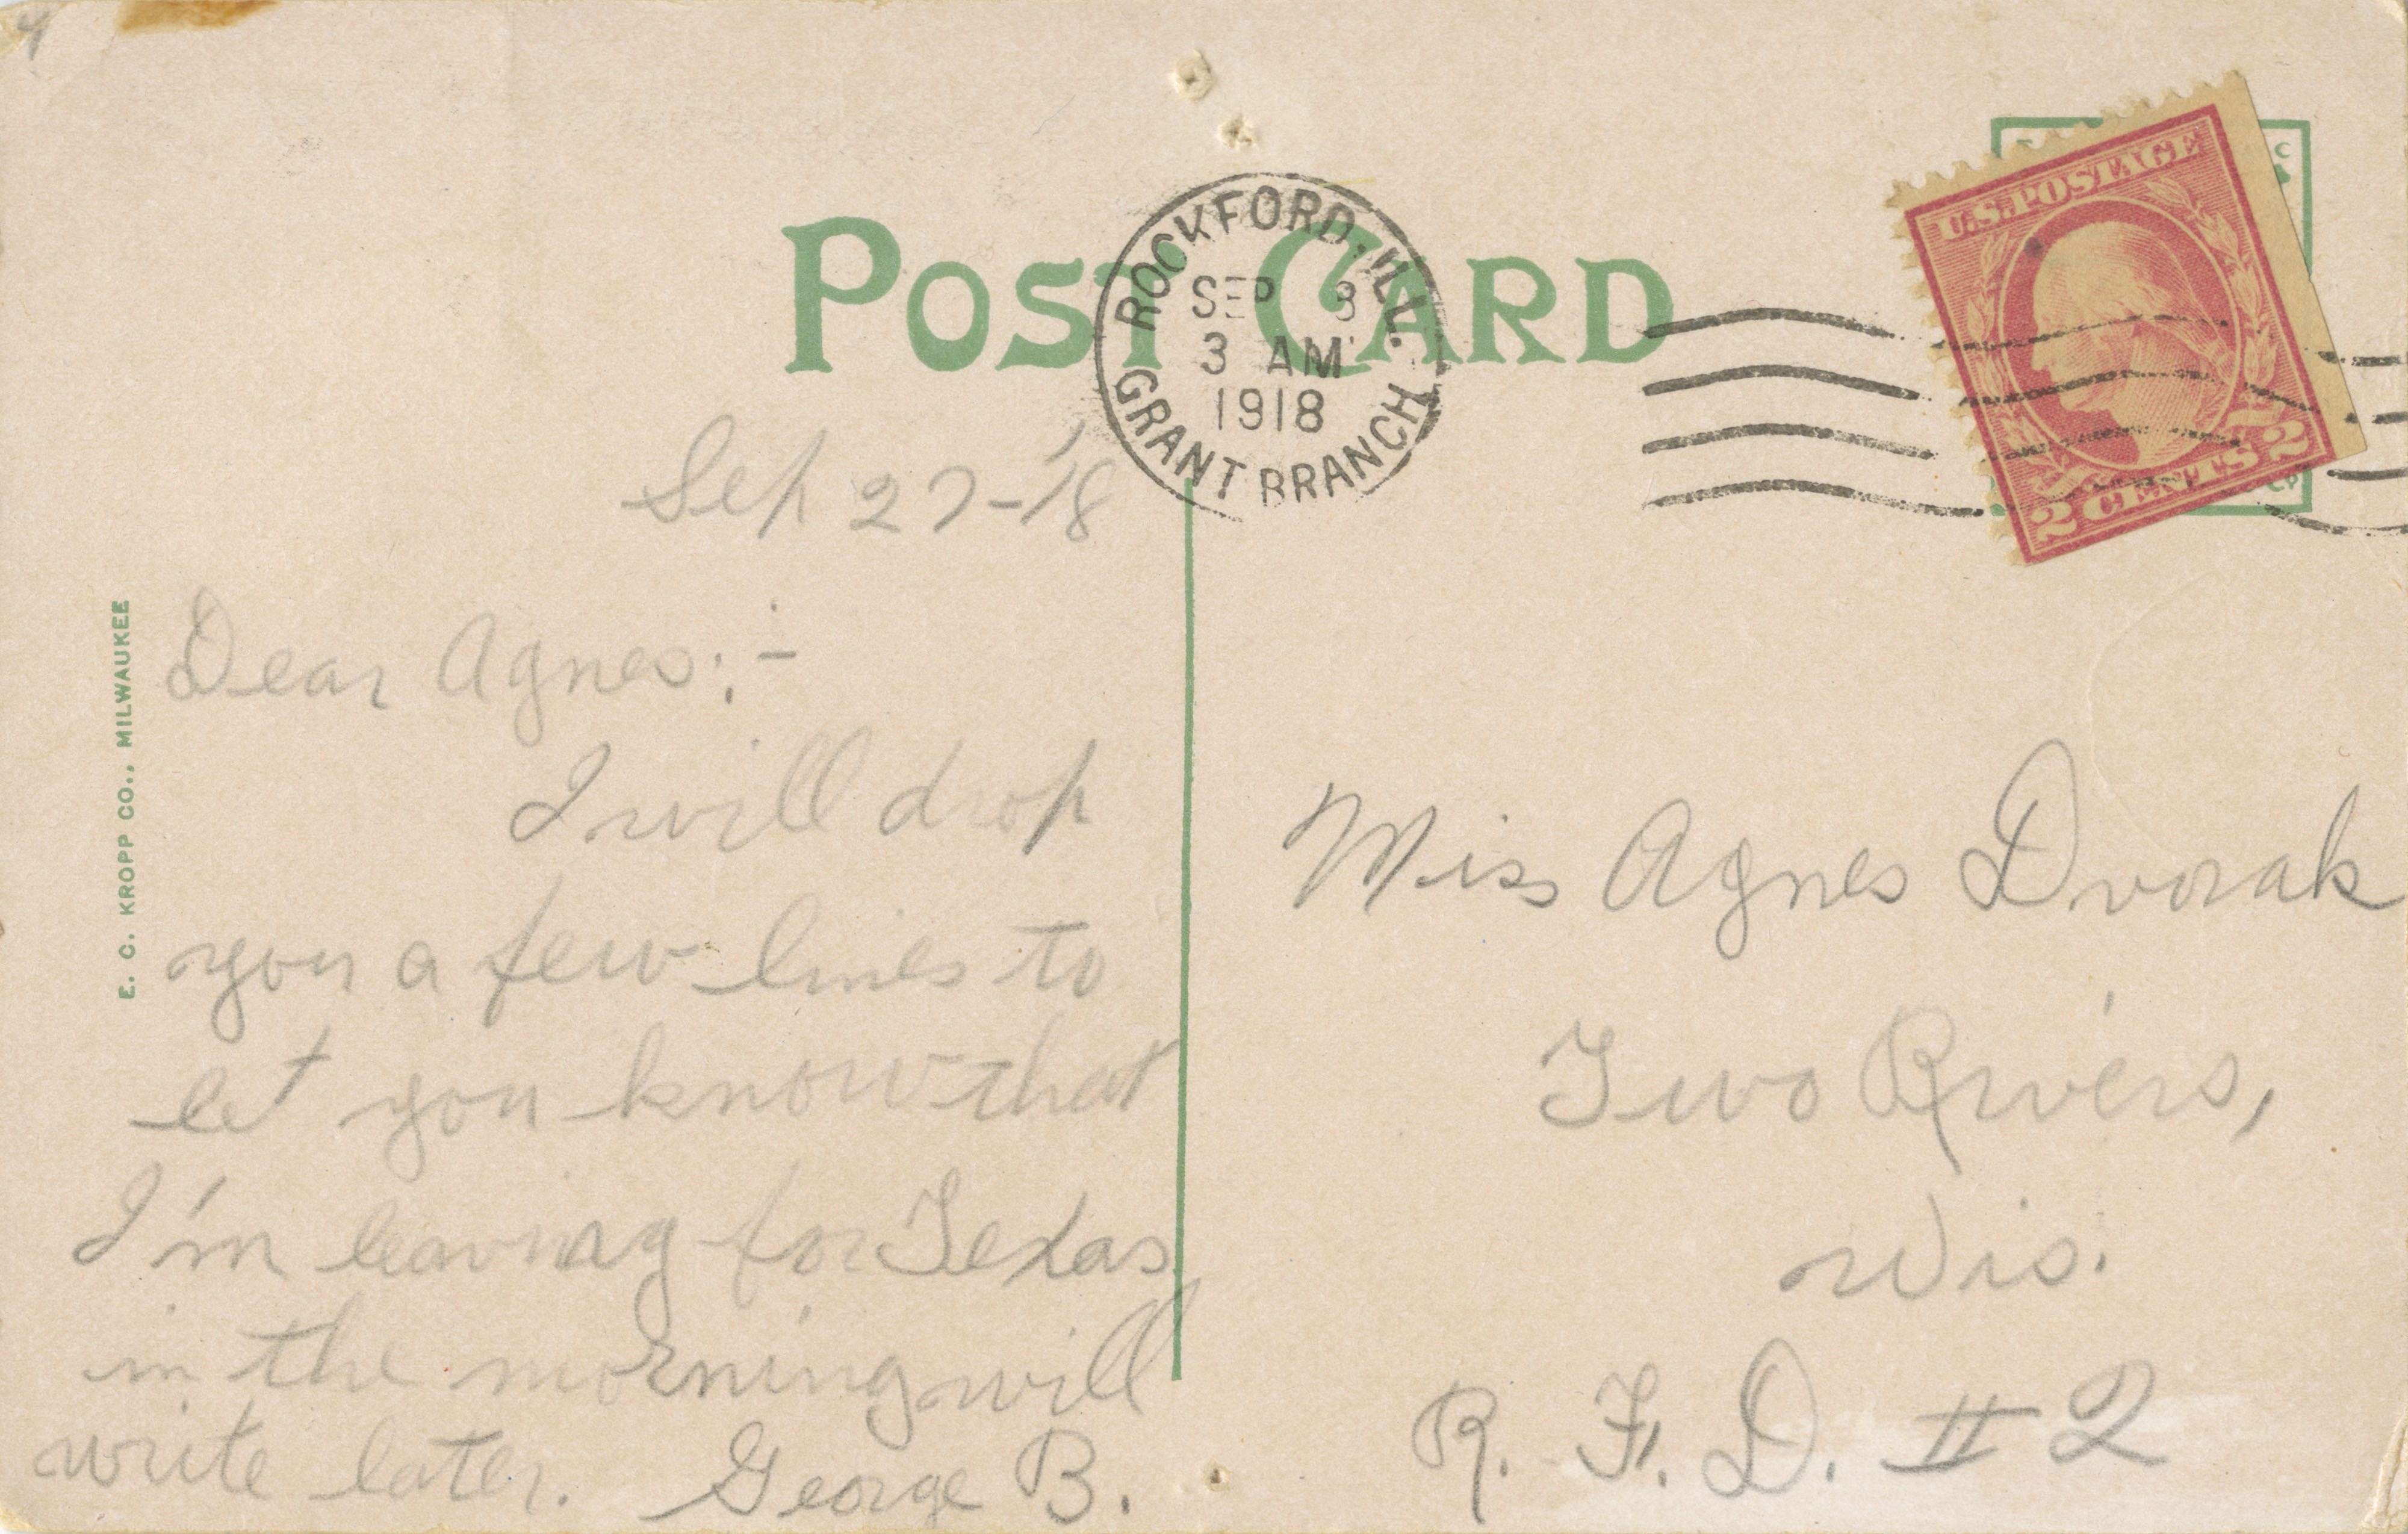 4
POST CARD
ROCKFORD, ILL.
SEP 8
3 AM
1918
GRANT BRANCH
U.S. POSTAGE
2 CENTS 2
E. C. KROPP CO., MILWAUKEE
Sep 27-'18
Dear Agnes:-
I will drop
you a few lines to
let you know that
I'm leaving for Texas
in the morning will
write later. George B.
Miss Agnes Dvorak
Two Rivers,
Wis.
R. F. D. # 2